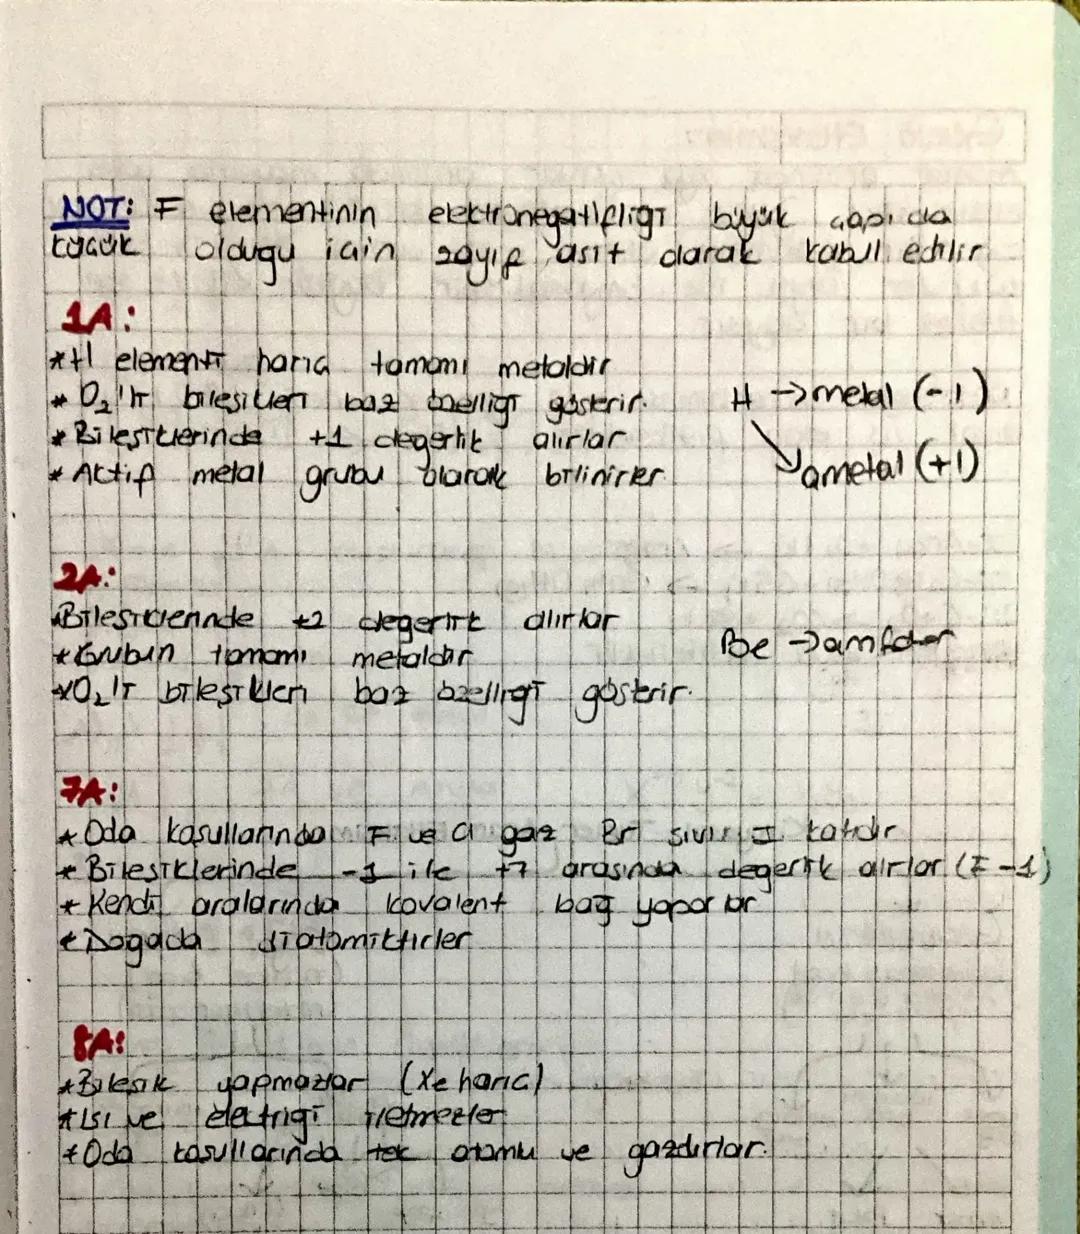 NOT: F elementinin elektronegatifliği büyük çapı da
küçük olduğu için zayıf asit olarak kabul edilir
1A:
*H elementi hariç tamamı metaldir
* O₂'li bileşikleri baz özelliği gösterir.
* Bileşiklerinde +1 değerlik alırlar
* Aktif metal grubu olarak bilinirler
H → metal (-1)
↘ ametal (+1)
2A:
*Bileşiklerinde +2 değerlik alırlar
*Grubun tamamı metaldir
*O₂'li bileşikleri baz özelliği gösterir.
Be → amfoter
7A:
* Oda koşullarında F ve Cl gaz Br sıvı I katıdır
* Bileşiklerinde -1 ile +7 arasında değerlik alırlar (F -1)
* Kendi aralarında kovalent bağ yaparlar
* Doğada diatomiktirler
8A:
*Bileşik yapmazlar (Xe hariç)
*Isı ve elektriği iletmezler
*Oda koşullarında tek atomlu ve gazdırlar.